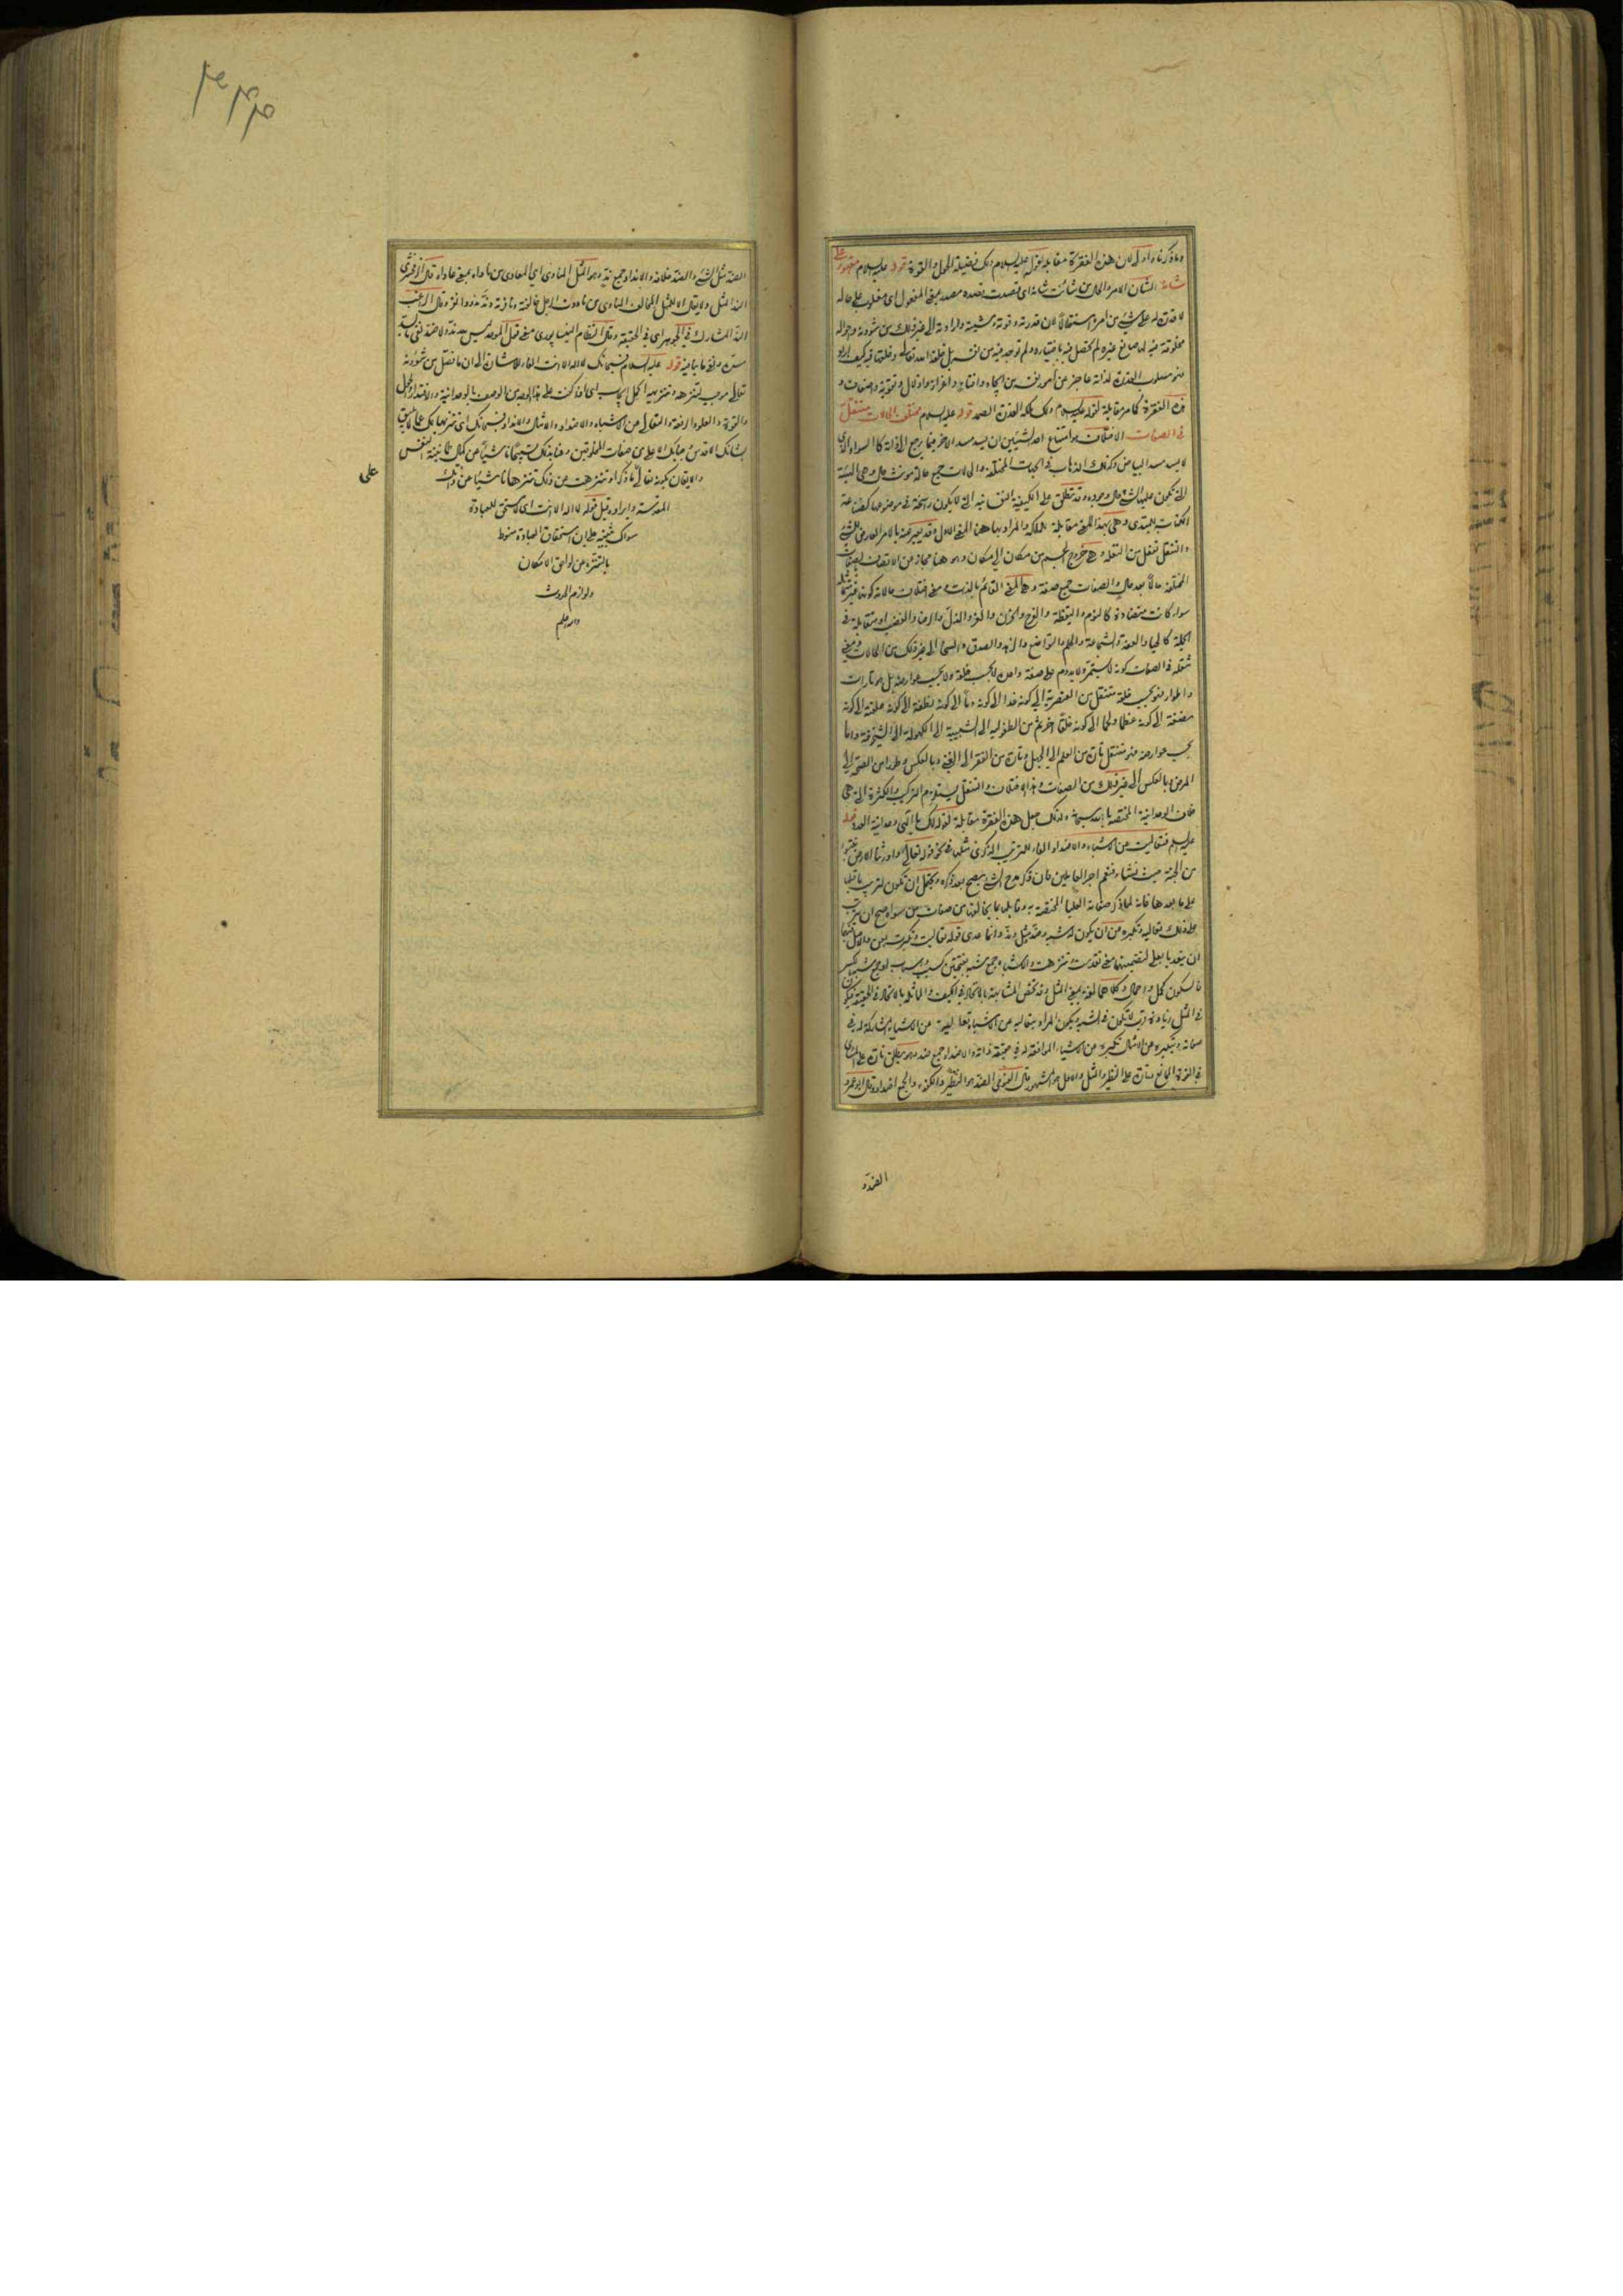 وما ذكرناه اولى لان هذه الفقرة مقابلة لقوله عليه السلام ولك فضيلة الحول والقوة قوله عليه السلام مقهور على
شانه الشأن الامر والحال من شأنت شأنه اى قصدت قصده مصدر بمعنى المفعول اى مغلوب على حاله
لا قدرة له على شئ من امره استقلالا لان قدرته وقوته ومشيته وارادته الى غير ذلك من شؤونه واحواله
مخلوقة فيه لصانع غيره لم تحصل فيه باختياره ولم توجد فيه من نفسه بل خلقه الله تعالى وخلقها فيه كيف اراد
فهو مسلوب القدرة لذاته عاجز عن امور نفسه من واعزاز واذلال وتقوية واضعاف و
هذه الفقرة كما مر مقابلة لقوله عليه السلام وملكة القدرة الصمد قوله عليه السلام مختلف الحالات متنقل
فى الصفات الاختلاف هو امتناع احد الشيئين ان يسد مسد الاخر فيما يرجع الى ذاته كالسواد الذى
لا يسد مسد البياض وكذلك الذهاب فى الجهات المختلفة والحالات جمع حالة مؤنث حال وهى الهيئة
التى تكون عليها الشئ حال وجوده وقد تطلق على الكيفية النفسانية التى لا يكون راسخة فى موضوعها كصناعة
الكتابة للمبتدى وهى بهذا المعنى مقابلة للملكة والمراد بها هنا المعنى الاول وقد يعبر عنه بالامر العارض للشئ
والتنقل تفعل من النقلة وهى خروج الجسم من مكان الى مكان وهو هنا مجاز من الاتصاف بصفات
المختلفة حالا بعد حال والصفات جمع صفة وهى المعنى القائم بالذات ومعنى اختلاف حالاته كونه
سواء كانت متضادة كالنوم واليقظة والفرح والحزن والعز والذل والرضا والغضب او متقابلة فى
الجملة كالحياء والعفة والشجاعة والحلم والتواضع والزهد والصدق والسخا الى غير ذلك من الحالات ومعنى
تنقله فى الصفات كونه لا يستمر ولا يدوم على صفة واحدة لا بحسب خلقه ولا بحسب عوارضه بل هو تارات
واطوار فهو بحسب خلقه متنقل من العنصرية الى كونه غذا الى كونه دما الى كونه نطفة الى كونه علقة الى كونه
مضغة الى كونه عظما ولحما الى كونه خلقا آخر ثم من الطفولية الى الشبيبة الى الكهولة الى الشيخوخة واما
بحسب عوارضه فهو متنقل تارة من العلم الى الجهل وتارة من الفقر الى الغنى وبالعكس وطورا من الصحة الى
المرض وبالعكس الى غير ذلك من الصفات وهذا الاختلاف والتنقل يستلزم التركيب والكثرة التى هى
خلاف الوحدانية المختصة بالله سبحانه ولذلك جعل هذه الفقرة مقابلة لقوله لك يا الهى وحدانية العدد قوله
عليه السلم فتعاليت عن الاشباه والاضداد الفاء للترتيب الذكرى مثلها فى نحو قوله تعالى واورثنا الارض نتبوأ
من الجنة حيث نشاء فنعم اجر العاملين فان ذكر مدح الشئ يصح بعد ذكره ويحتمل ان تكون لترتيب ما قبلها
على ما بعدها فانه لما ذكر صفاته العليا المختصة به وقابلها بما يخالفها من صفات من سواه صح ان يترتب
على ذلك تعاليه وتكبره من ان يكون له شبه وضد ومثل وند وانما عدى قوله تعاليت وتكبرت بعن والاصل فيهما
ان يتعديا بعلى لتضمينهما معنى تقدست وتنزهت والاشباه جمع شبه بفتحتين كسبب واسباب او جمع شبه بالكسر
فالسكون كحمل واحمال وكلاهما لغة بمعنى المثل وقد تخص المشابهة بالاتحاد فى الكيف والمماثلة بالاتحاد فى الحقيقة فيكون
فى المثل زيادة قرب لا تكون فى الشبه ويكون المراد بتعاليه عن الاشباه تعاليه عن الاشياء المشاركة له فى
صفاته وبتكبره عن الامثال تكبره عن الاشياء الموافقة له فى حقيقة ذاته والاضداد جمع ضد وهو يطلق تارة على المساوى
فى القوة الممانع وتارة على النظير والمثل والاول هو المشهور قال الفيومى الضد هو النظير والكفو والجمع اضداد وقال ابو عمرو
الضد
الضد مثل الشئ والضد خلافه والانداد جمع ند وهو المثل المناوى اى المعادى من ناواه بمعنى عاداه قال الزمخشرى
الند المثل ولا يقال الا للمثل المخالف المناوى من ناددت الرجل خالفته ونافرته وند ندودا نفر وقال الراغب
الند المشارك فى الجوهر اى فى الحقيقة وقال النظام النيسابورى معنى قول الموحد ليس لله ند ولا ضد نفى ما يسد
مسده ونفى ما ينافيه قوله عليه السلام فسبحانك لا اله الا انت الفاء للاشارة الى ان ما فصل من شؤونه
تعالى موجب لتنزهه وتنزيهه اكمل ايجاب اى اذا كنت على هذا الوجه من الوصف بالوحدانية والاقتدار والحول
والقوة والعلو والرفعة والتعالى من الاشباه والاضداد والامثال والانداد فسبحانك اى تنزيها لك عما لا يليق
بشانك الاقدس وجنابك الاعلى من صفات المخلوقين
والايقان بكونه تعالى او تنزهت عن ذلك تنزها ناشئا عن ذاتك
المقدسة وايراده قبل قوله لا اله الا انت اى لا مستحق للعبادة
سواك تنبيه على ان استحقاق العبادة منوط
بالتنزه عن لواحق الامكان
ولوازم الحدوث
والله اعلم
على